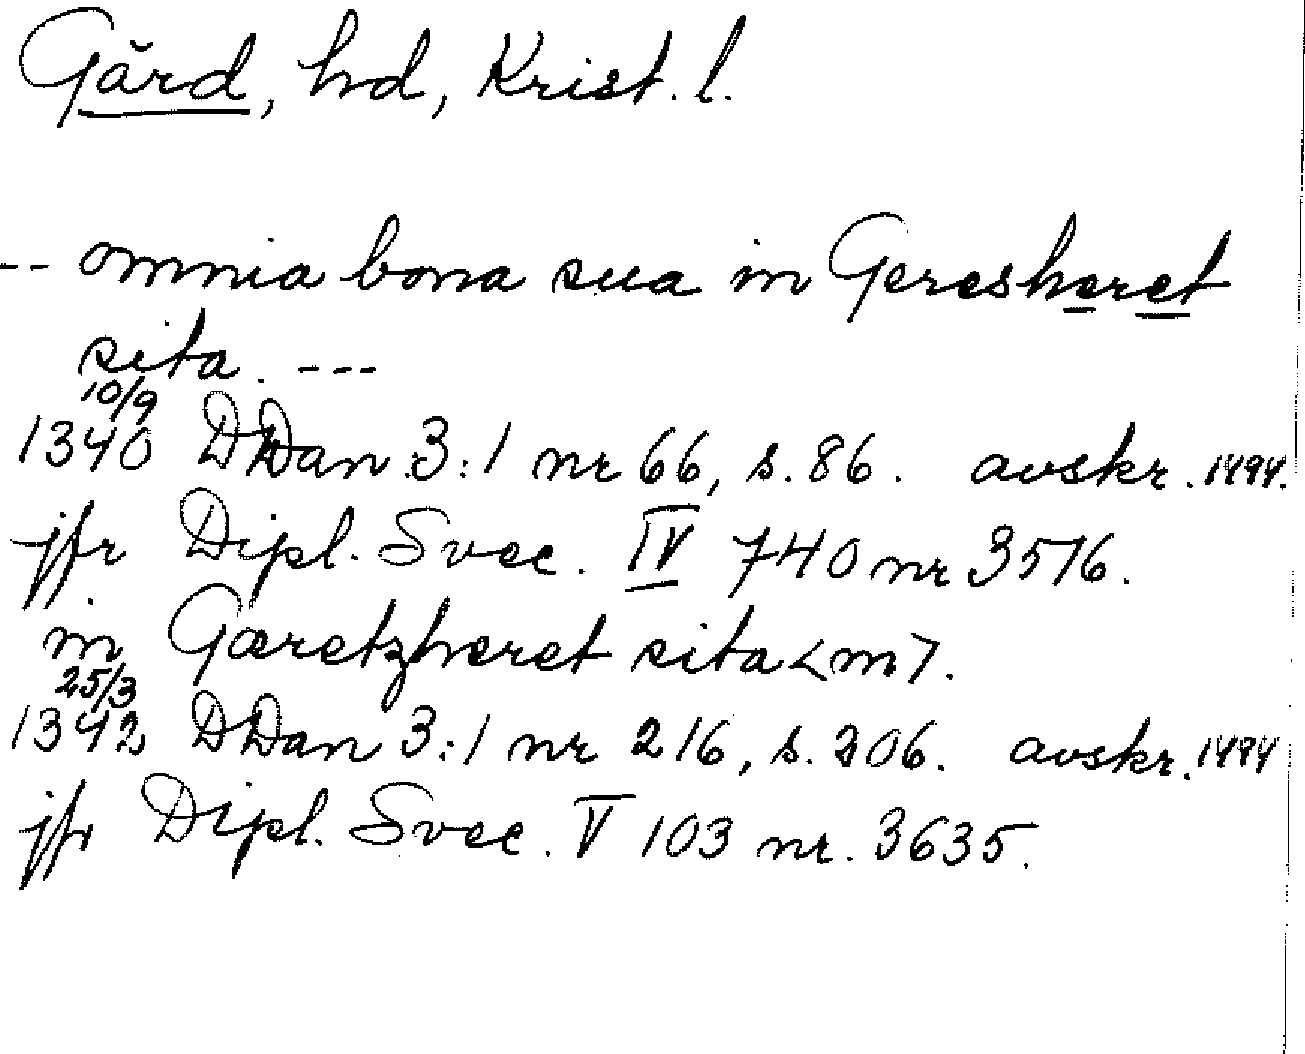 Gärd, hd, Krist. l.
-- omnia bona sua in Geresheret
sita. ---
10/9
1340 DDan 3:1 nr 66, s. 86. avskr. 1494.
jfr Dipl. Svec. IV 740 nr 3576.
in Gæretzheret sita<m>.
25/3
1342 DDan 3:1 nr 216, s. 206. avskr. 1494
jfr Dipl. Svec. V 103 nr. 3635.